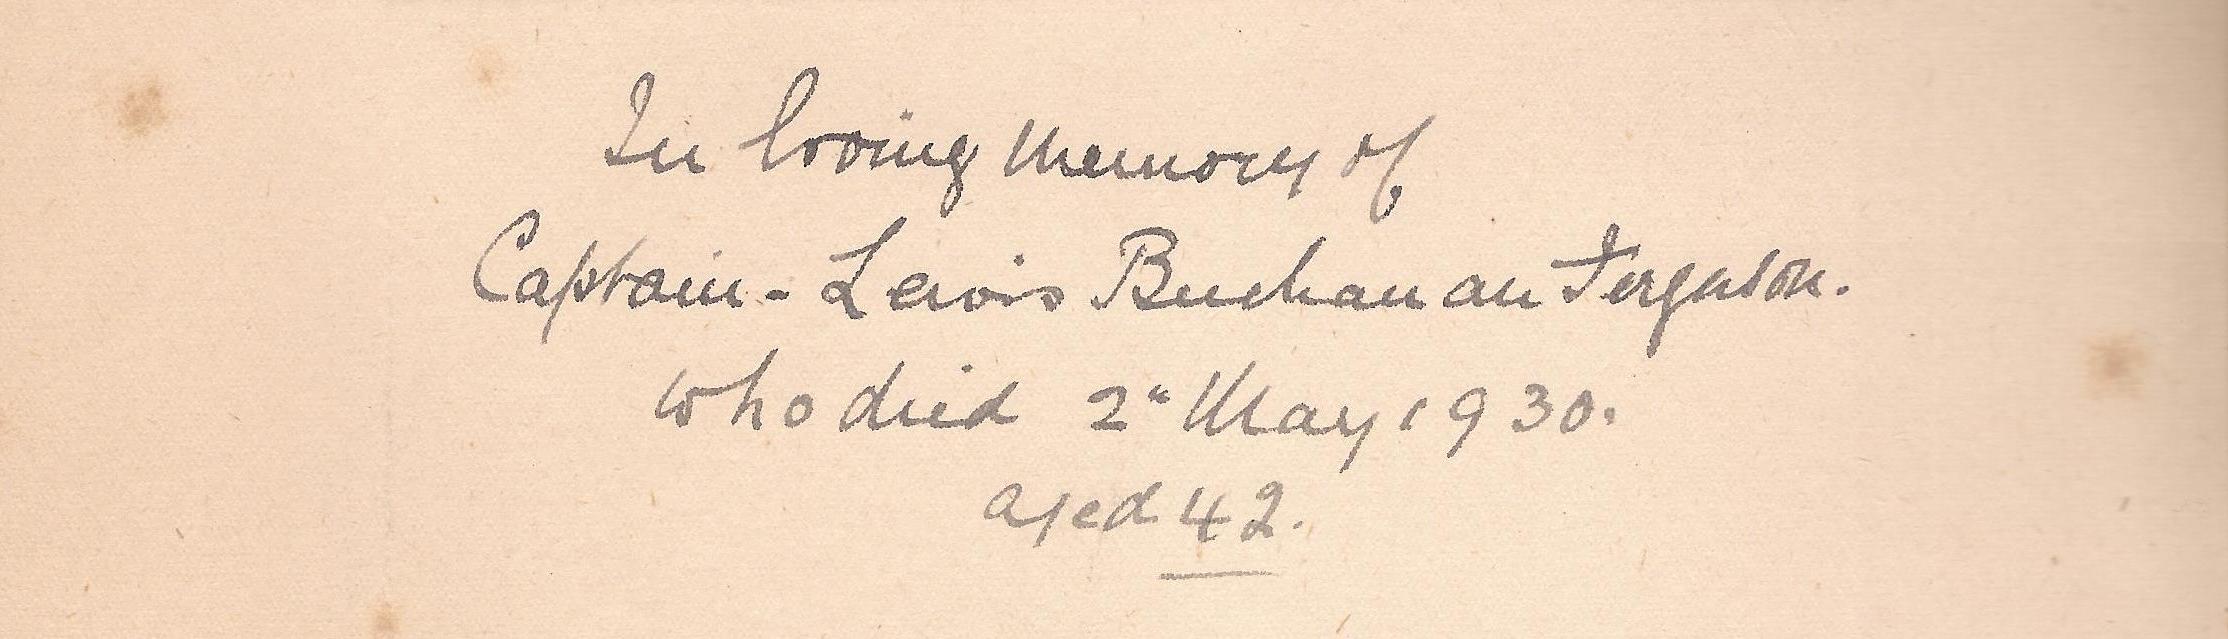 In loving memory of
Captain - Lewis Buchanan Ferguson.
who died 2" May 1930.
aged 42.